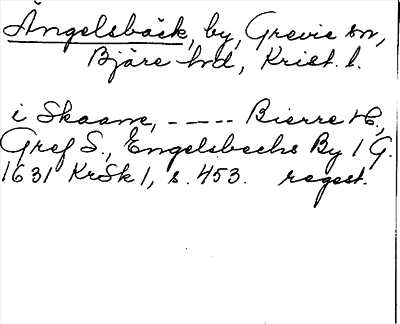 Ängelsbäck, by, Grevie sn,
Bjäre hd, Krist. l.
i Skaane, ---- Bierre H.,
Gref S., Engelsbechs By 1 G.
1631 KrSk 1, s. 453. regest.